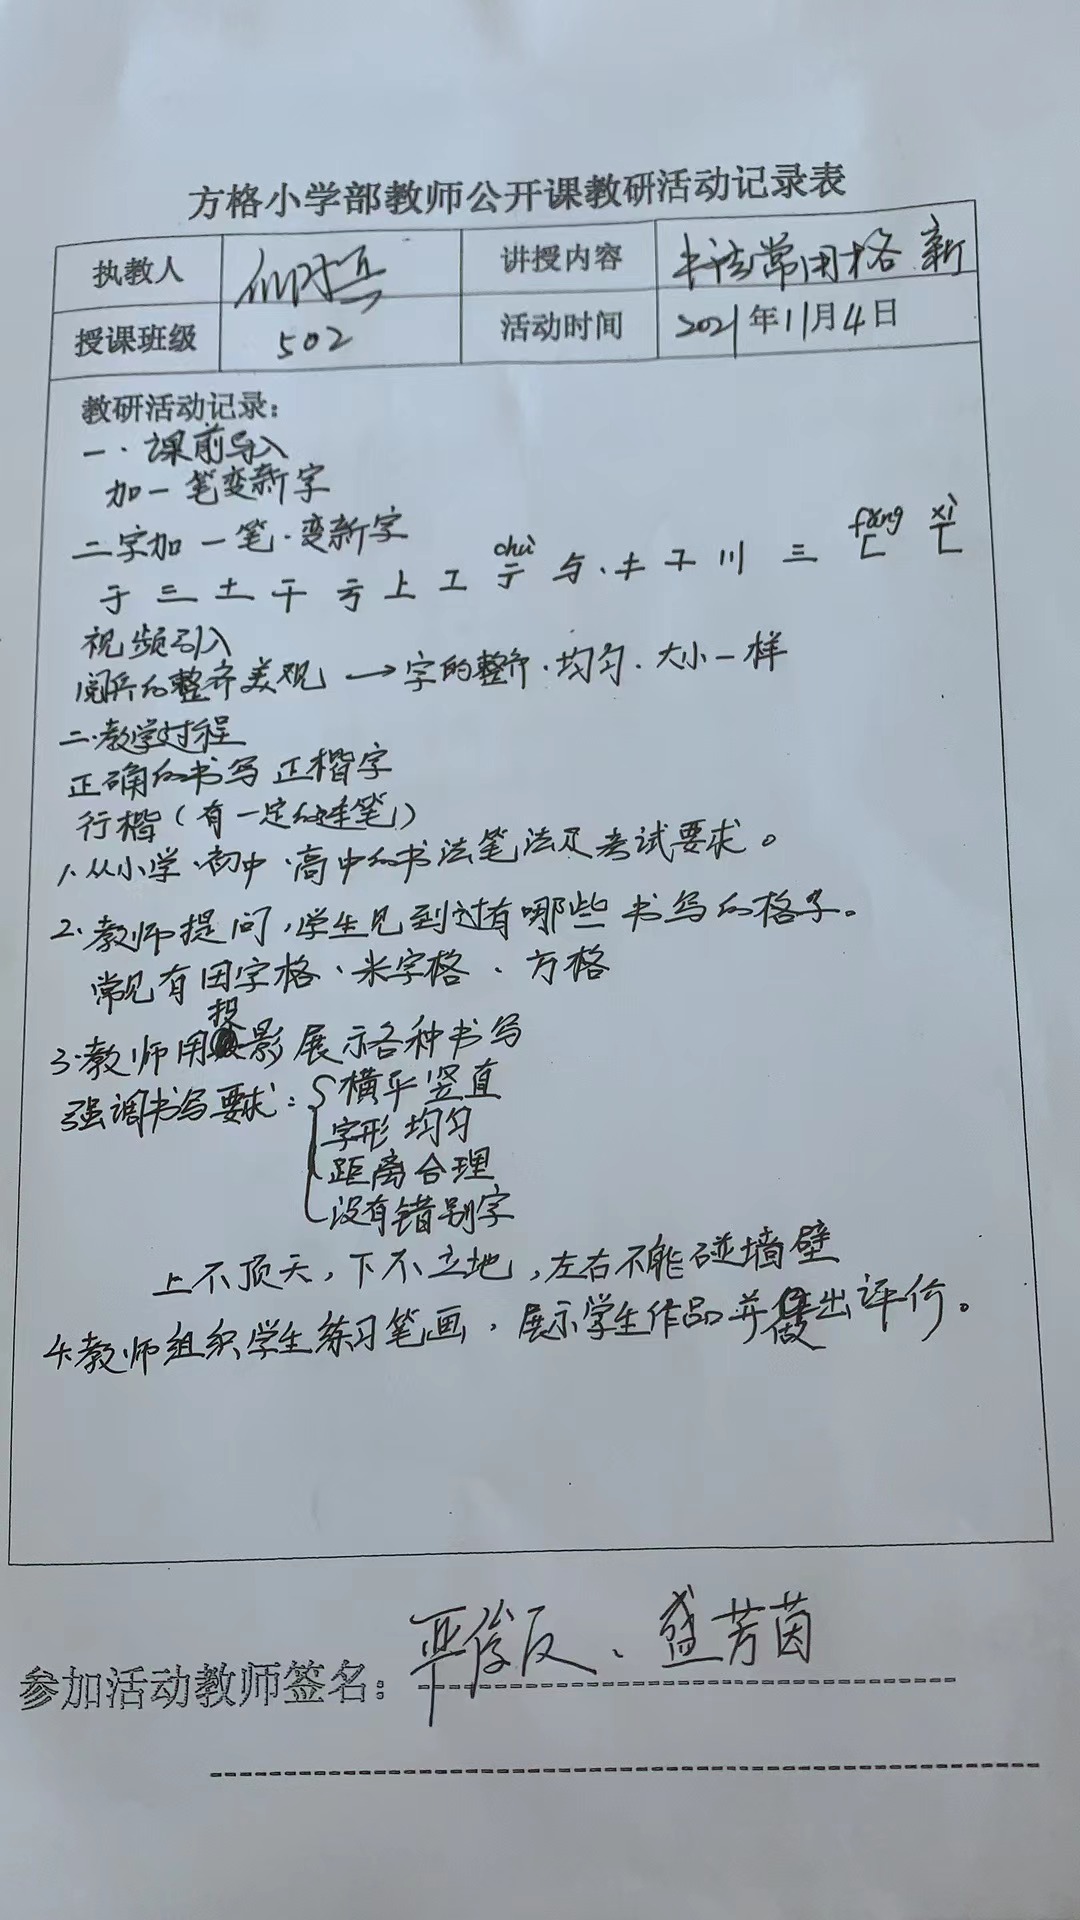 方格小学部教师公开课教研活动记录表
执教人 讲授内容 书法常用格 新
授课班级 502 活动时间 2021年11月4日
教研活动记录：
一.课前导入
加一笔变新字
二字加一笔.变新字
chù fāng xì
于 三 土 干 亏 上 工 亍 与. 丰 子 川 三 匚 匸
视频引入
阅兵的整齐美观 → 字的整齐.均匀.大小一样
二.教学过程
正确的书写 正楷字
行楷（有一定的连笔）
1.从小学.初中.高中的书法笔法及考试要求。
2.教师提问,学生见到过有哪些书写的格子。
常见有田字格、米字格、方格
3.教师用投影展示各种书写
强调书写要求: 横平竖直
字形均匀
距离合理
没有错别字
上不顶天,下不立地,左右不能碰墙壁
4.教师组织学生练习笔画,展示学生作品并做出评价。
参加活动教师签名： 严俊反、盛芳茵